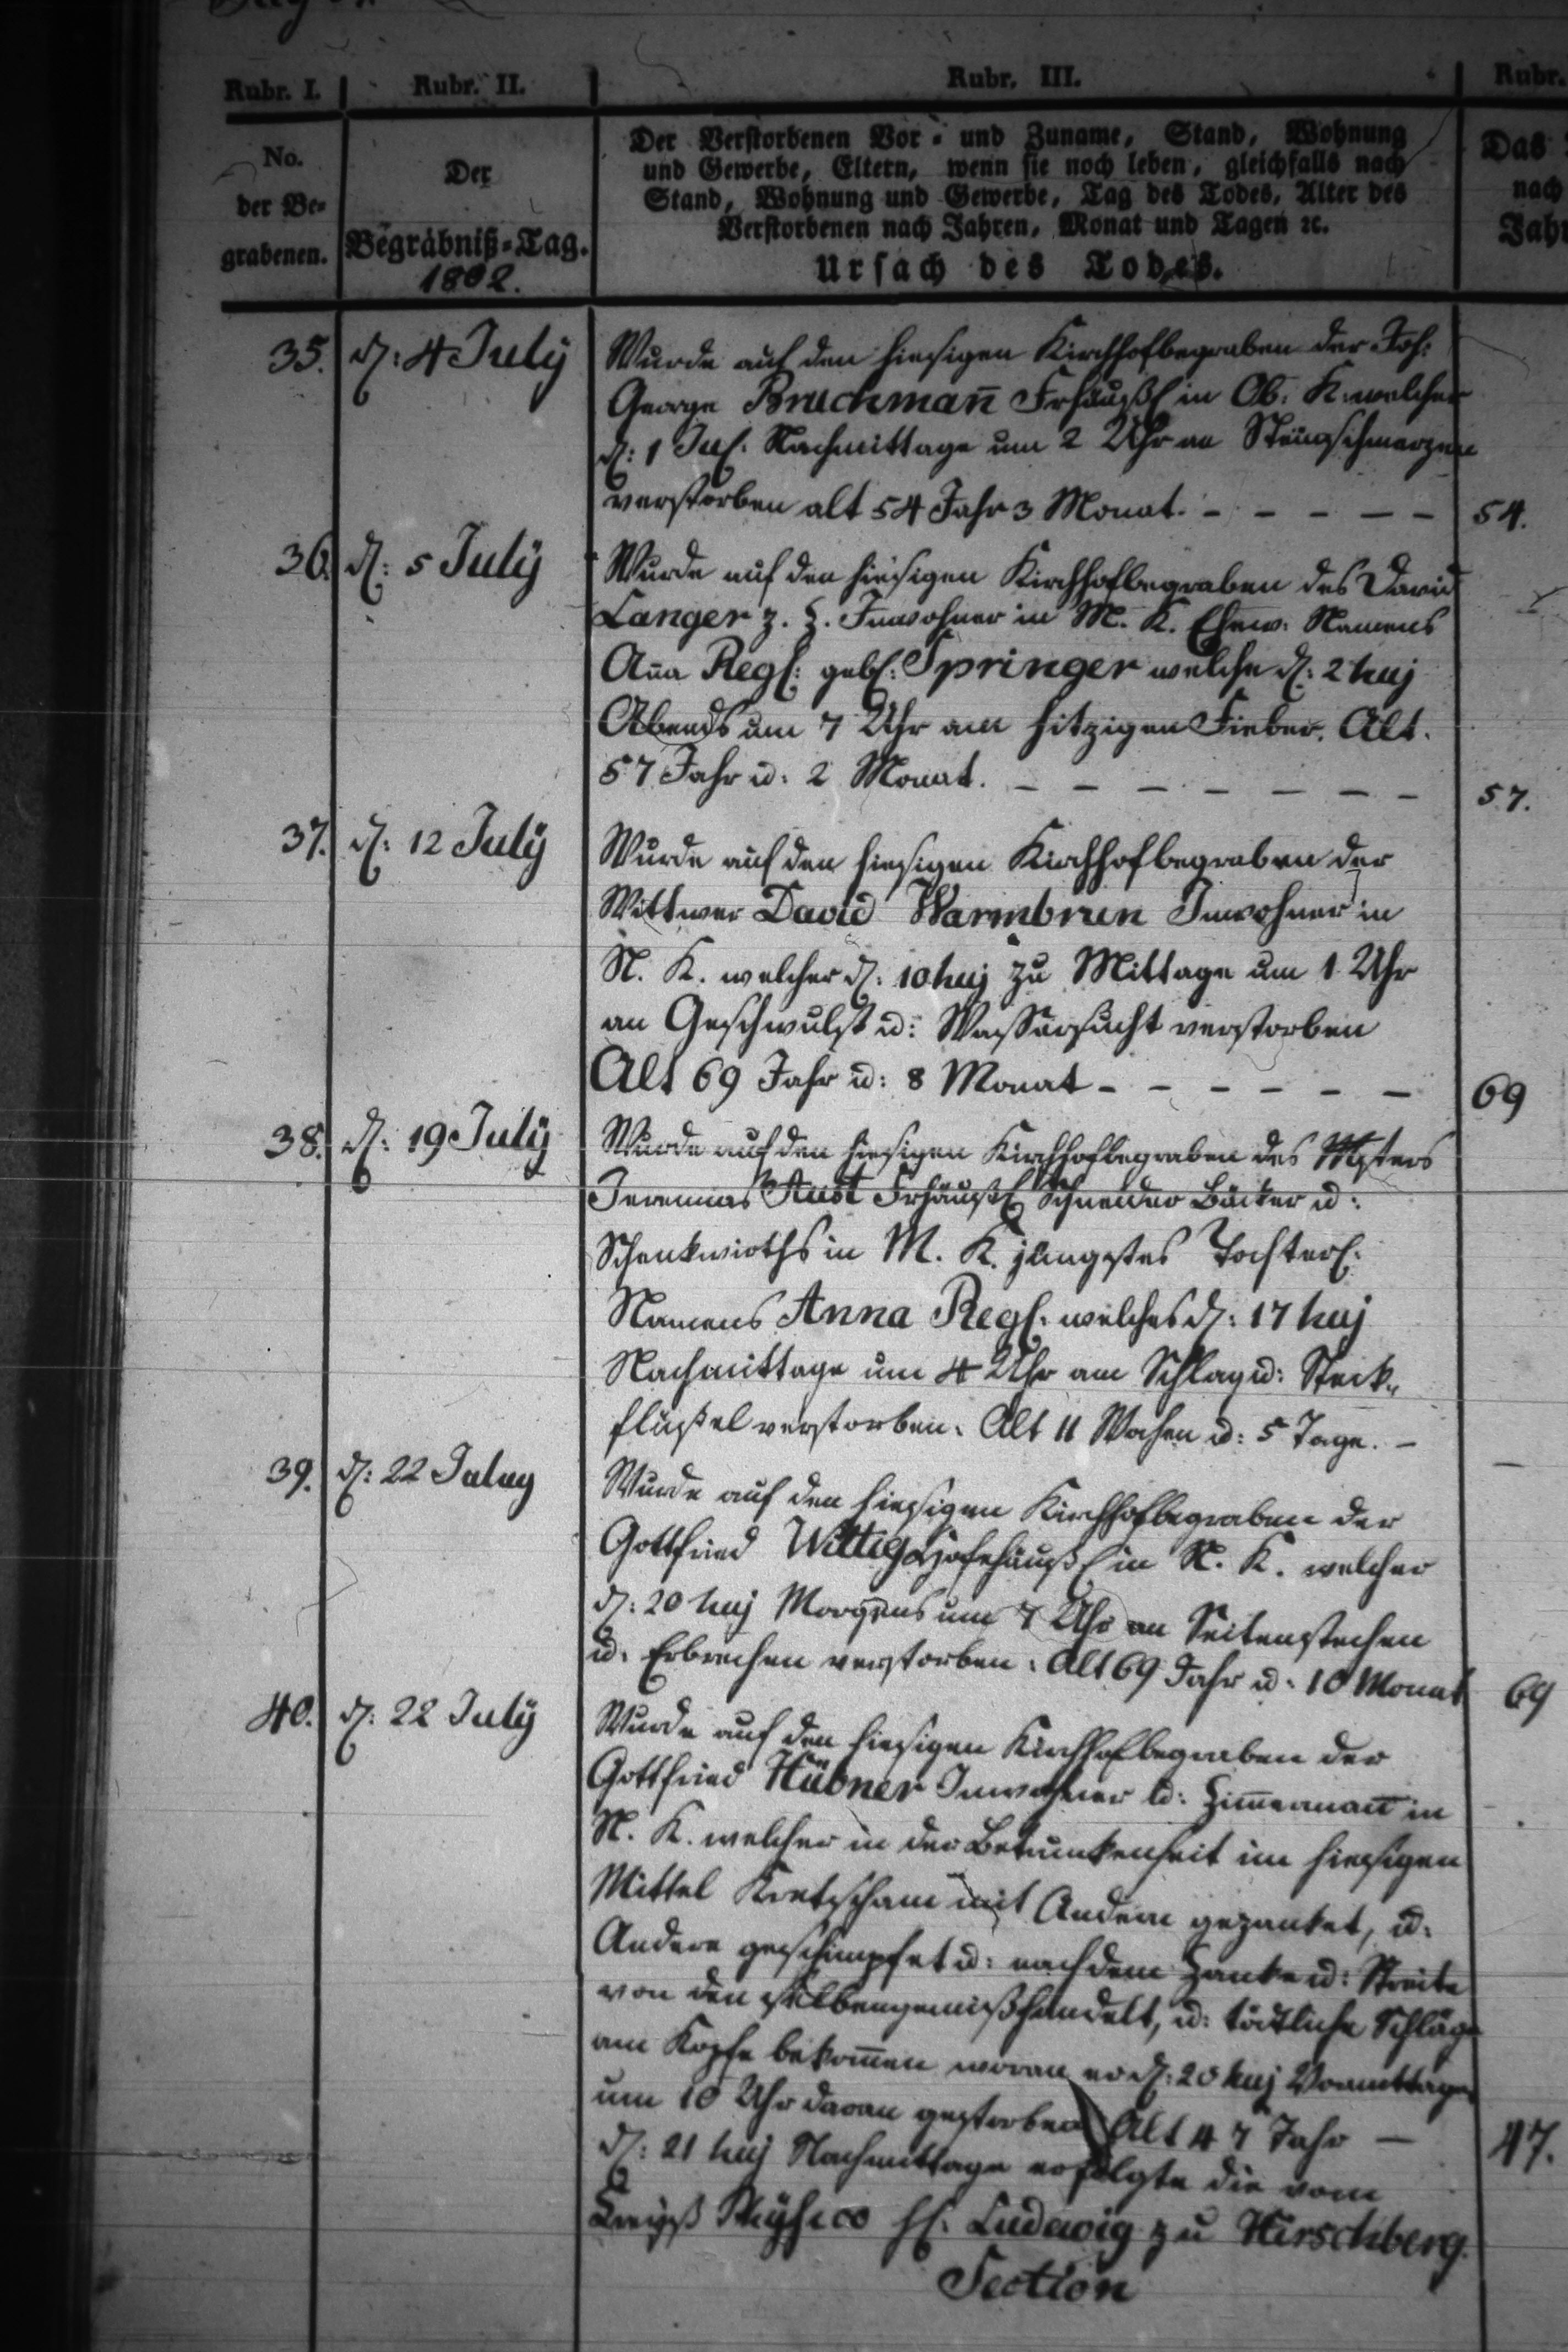 Rubr. I. Rubr. II. Rubr. III. Rubr.
No.
der Be=
grabenen.
Der
Begräbniß=Tag.
1802.
Der Verstorbenen Vor= und Zuname, Stand, Wohnung
und Gewerbe, Eltern, wenn sie noch leben, gleichfalls nach
Stand, Wohnung und Gewerbe, Tag des Todes, Alter des
Verstorbenen nach Jahren, Monat und Tagen ꝛc.
Ursach des Todes.
Das
nach
Jahr
35. d: 4 July Wurde auf den hiesigen Kirchhof begraben der Joh:
George Bruchman̄ Frhäußl in Ob: K. welcher
d: 1 Jul. Nachmittage um 2 Uhr an Steinschmerzen
verstorben alt 54 Jahr 3 Monat. - - - - - 54.
36. d: 5 July Wurde auf den hiesigen Kirchhof begraben des David
Langer z. Z. Inwohner in M. K. Ehew: Namens
Ana Regl: gebl: Springer welche d: 2 huj
Abends um 7 Uhr am hitzigen Fieber. Alt.
57 Jahr u: 2 Monat. - - - - - - - 57.
37. d: 12 July Wurde auf den hiesigen Kirchhof begraben der
Wittwer David Warmbrun Inwohner in
N. K. welcher d: 10 huj zu Mittage um 1 Uhr
an Geschwulst u: Wassersucht verstorben
Alt 69 Jahr u: 8 Monat - - - - - - 69
38. d: 19 July Wurde auf den hiesigen Kirchhof begraben des Msters
Jeremias Aust Frhäußl Schneider Bäcker u:
Schenkwirths in M. K. jüngstes Töchterl:
Namens Anna Regl: welches d: 17 huj
Nachmittage um 4 Uhr am Schlag u: Steck=
flußel verstorben. Alt 11 Wochen u: 5 Tage. -
39. d: 22 Wurde auf den hiesigen Kirchhof begraben der
Gottfried Wittig Hofehäußl in N. K. welcher
d: 20 huj Morgens um 7 Uhr an Seitenstechen
u: Erbrechen verstorben. Alt 69 Jahr u: 10 Monat 69
40. d: 22 July Wurde auf den hiesigen Kirchhof begraben der
Gottfried Hübner Inwohner u: Zimmerman̄ in
N. K. welcher in der Betrunkenheit im hiesigen
Mittel Kretscham mit Andern gezanket, u:
Andere geschimpfet u: nach dem Zanke u: Streite
von den selben gemißhandelt, u: tödtliche Schläge
am Kopfe bekom̄en woran er d: 20 huj Vormittage
um 10 Uhr daran gestorben Alt 47 Jahr - 47.
d: 21 huj Nachmittage erfolgte die vom
Kreyß Physico H: Ludewig zu Hirschberg.
Section